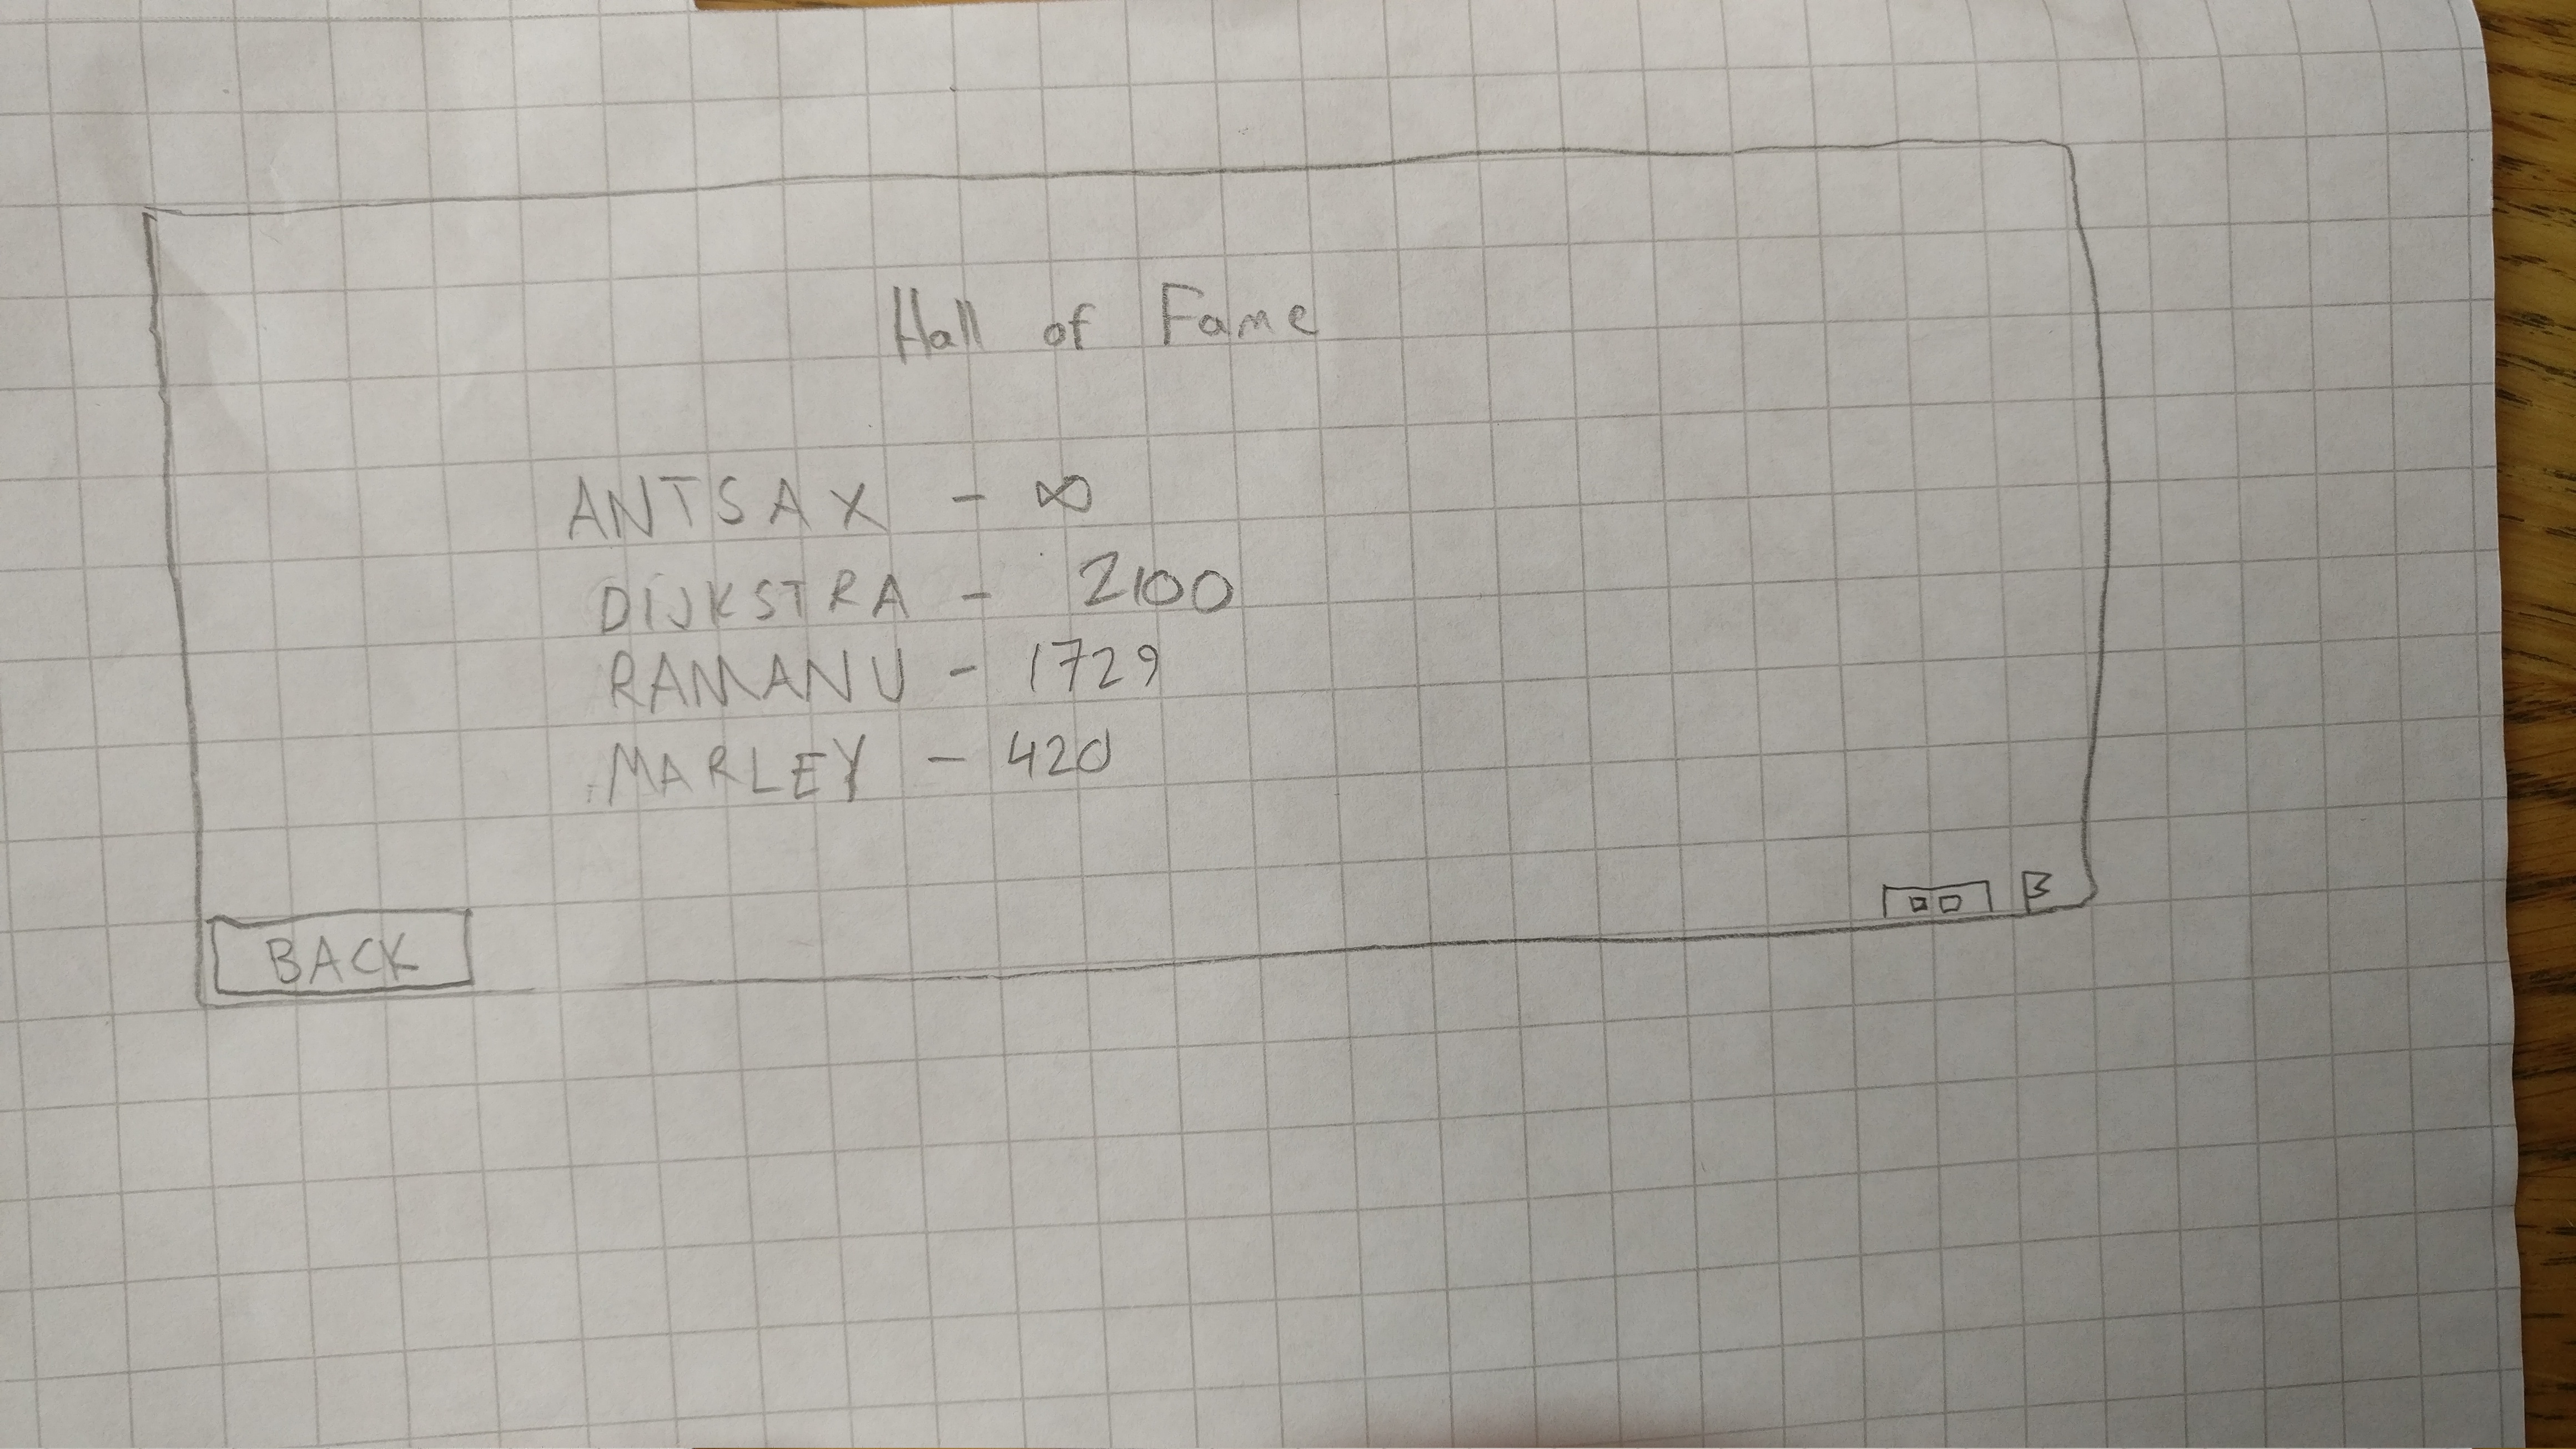 Hall of Fame
ANTSAX - ∞
DIJKSTRA - 2100
RAMANU - 1729
MARLEY - 420
BACK